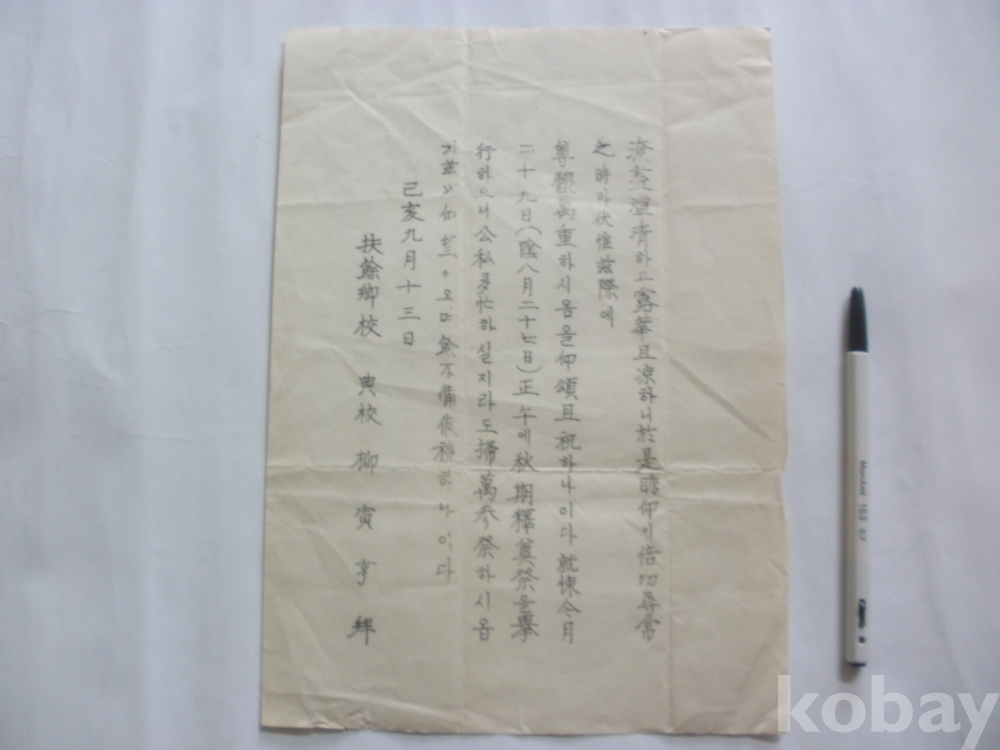 澄清하고 露華且凉하니 於是瞻仰이 倍切尋常
之時라 伏惟玆際에
尊體萬重하시옴을 仰頌且祝하나이다 就悚今月
二十九日(陰八月二十七日)正午에 秋期釋奠祭을 擧
行하오니 公私多忙하실지라도 掃萬參祭하시옵
기 玆以仰 餘不備 하나이다
己亥九月十三日
扶餘鄕校 典校 柳寅亨 拜
kobay